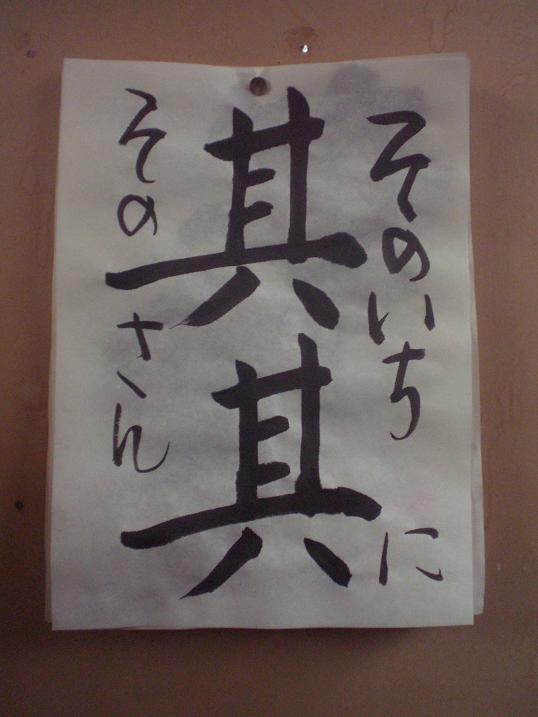 そのいち に
其其
そのさん